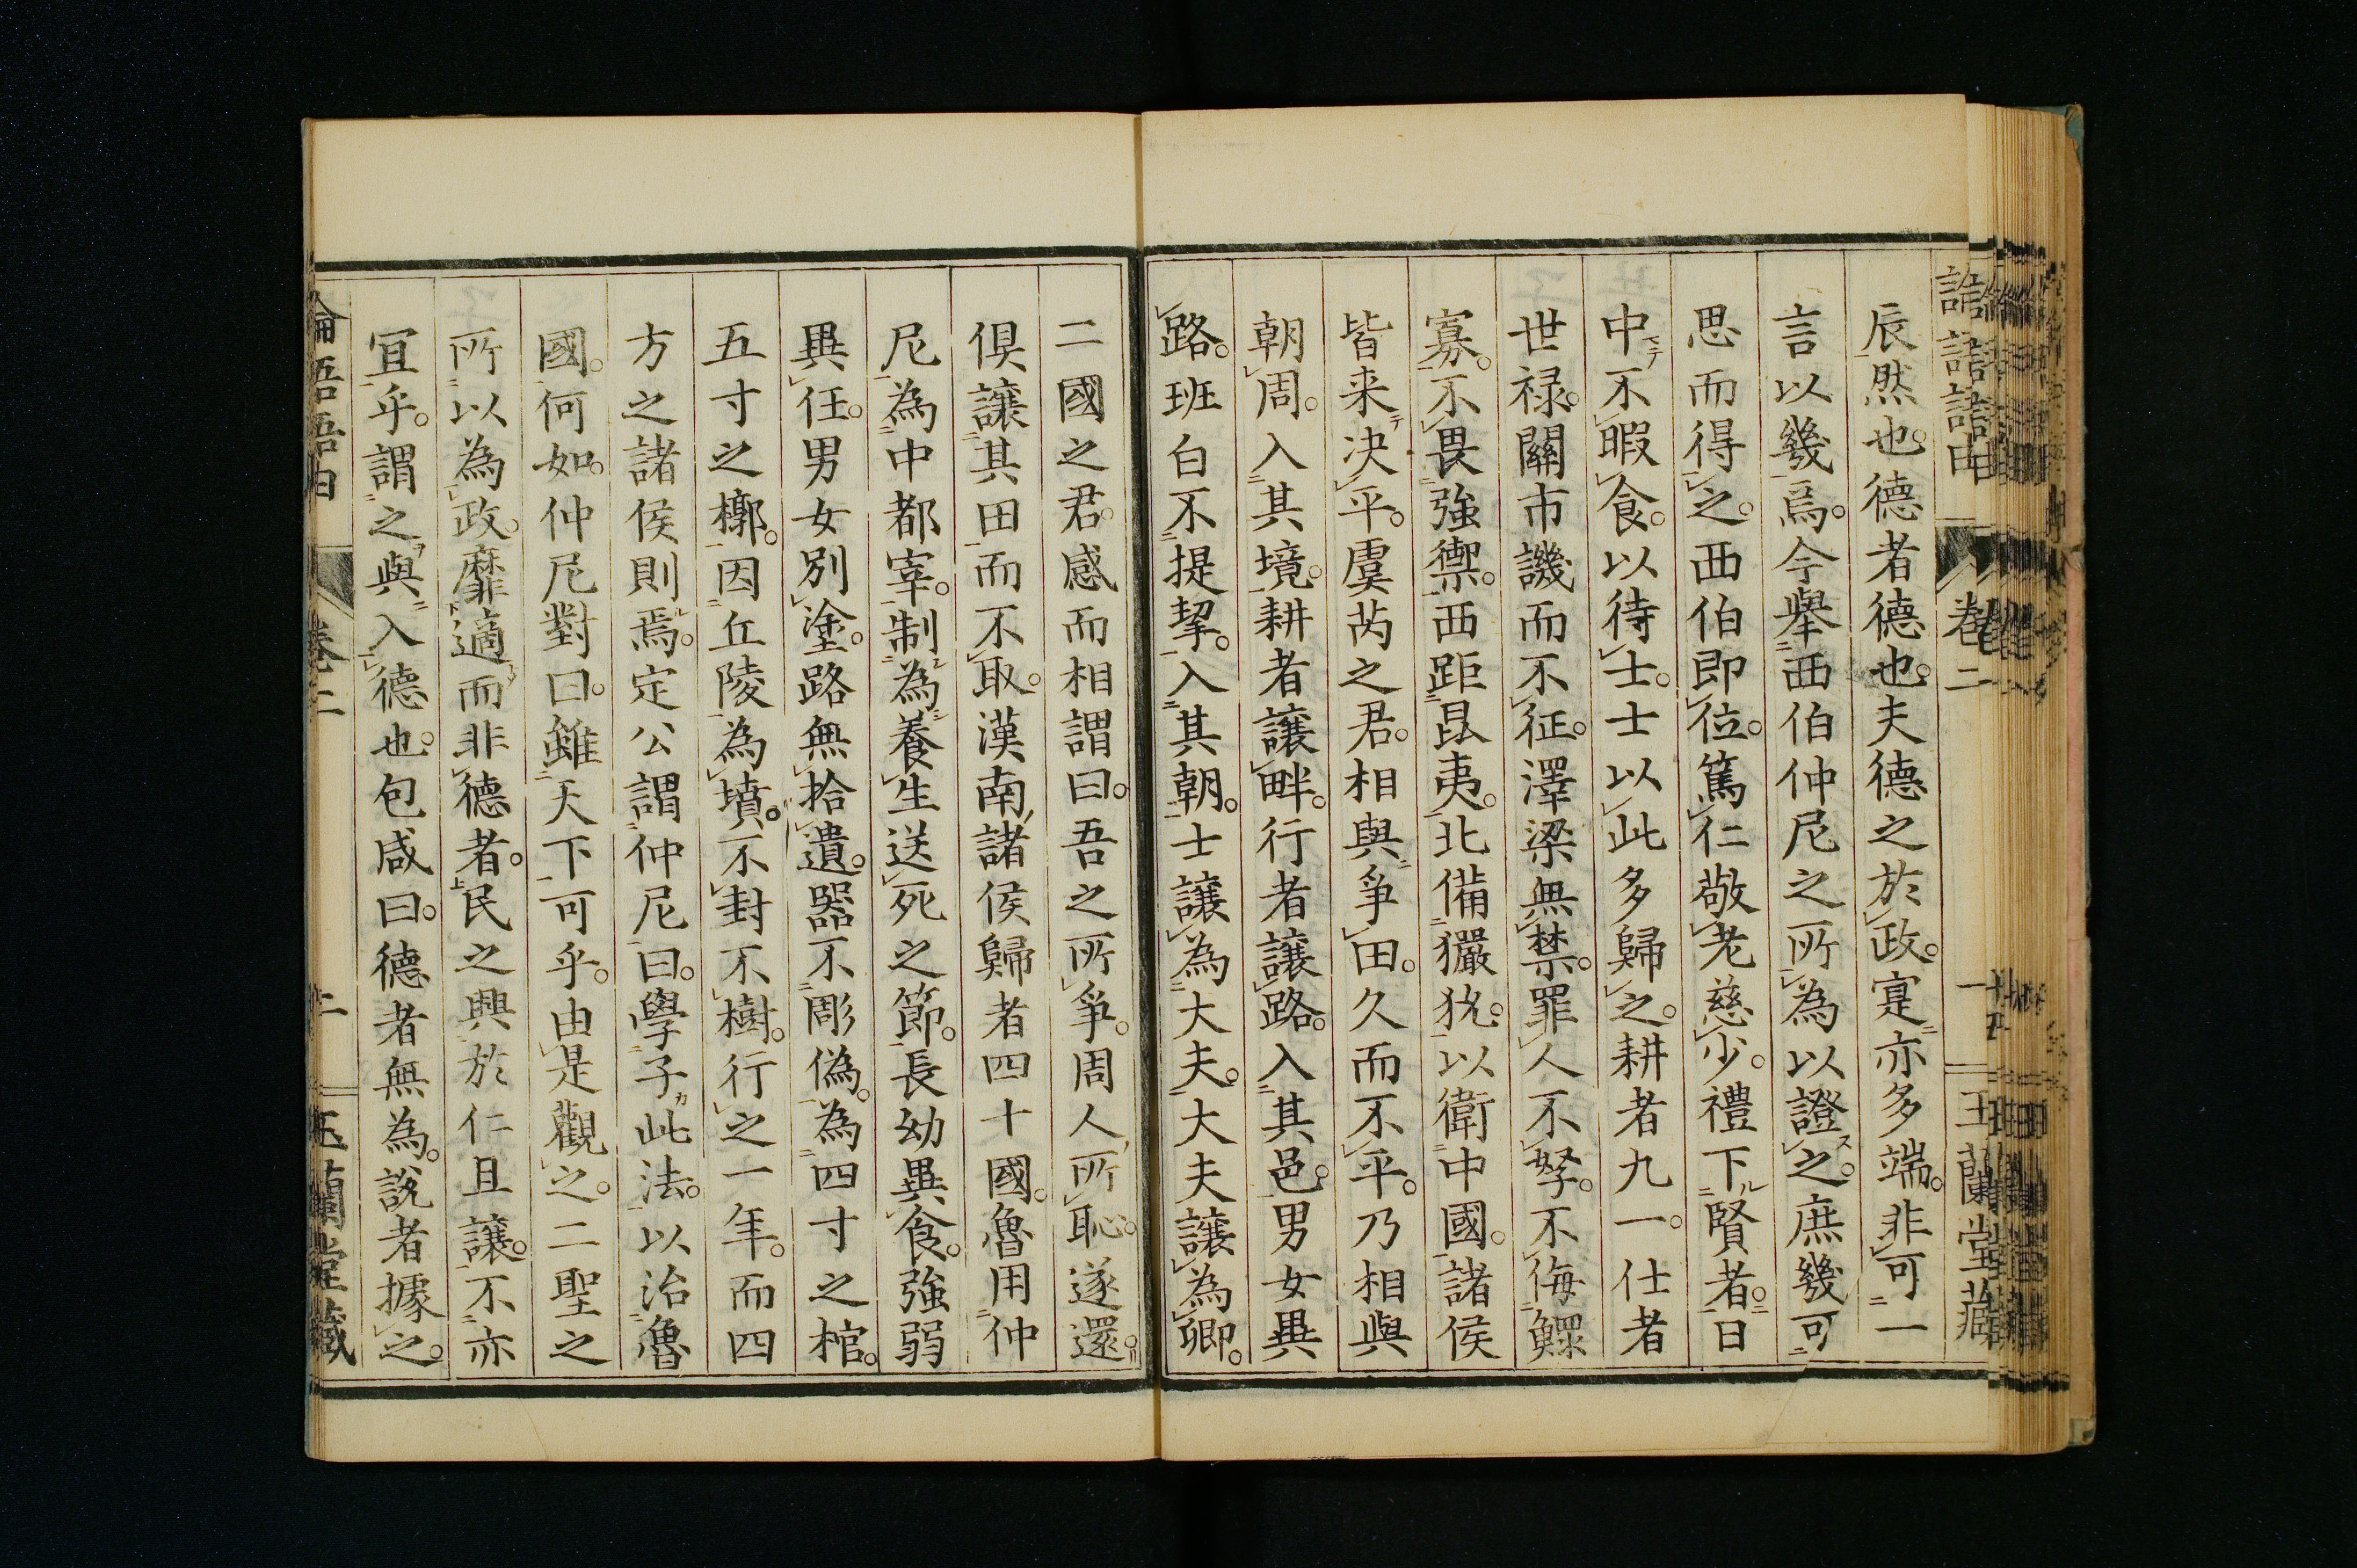 辰然也。德者德也。夫德之於政。寔亦多端。非可一
言以幾焉。今舉西伯仲尼之所為以證之。庶幾可
思而得之。西伯即位。篤仁敬老慈少。禮下賢者。日
中不暇食。以待士。士以此多歸之。耕者九一。仕者
世祿。關市譏而不征。澤梁無禁。罪人不孥。不侮鰥
寡。不畏強禦。西距昆夷。北備玁狁。以衛中國。諸侯
皆来决平。虞芮之君。相與爭田。久而不平。乃相與
朝周。入其境。耕者讓畔。行者讓路。入其邑。男女異
路。班白不提挈。入其朝。士讓為大夫。大夫讓為卿。
二國之君。感而相謂曰。吾之所爭。周人所恥。遂還。
俱讓其田而不取。漢南諸侯歸者四十國。魯用仲
尼為中都宰。制為養生送死之節。長幼異食。強弱
異任。男女別塗。路無拾遺。器不彫偽。為四寸之棺。
五寸之槨。因丘陵為墳。不封不樹。行之一年。而四
方之諸侯則焉。定公謂仲尼曰。學子此法。以治魯
國。何如。仲尼對曰。雖天下可乎。由是觀之。二聖之
所以為政。靡適而非德者。民之興於仁且讓。不亦
宜乎。謂之與入德也。包咸曰。德者無為。說者據之。
卷二
玉蘭堂藏